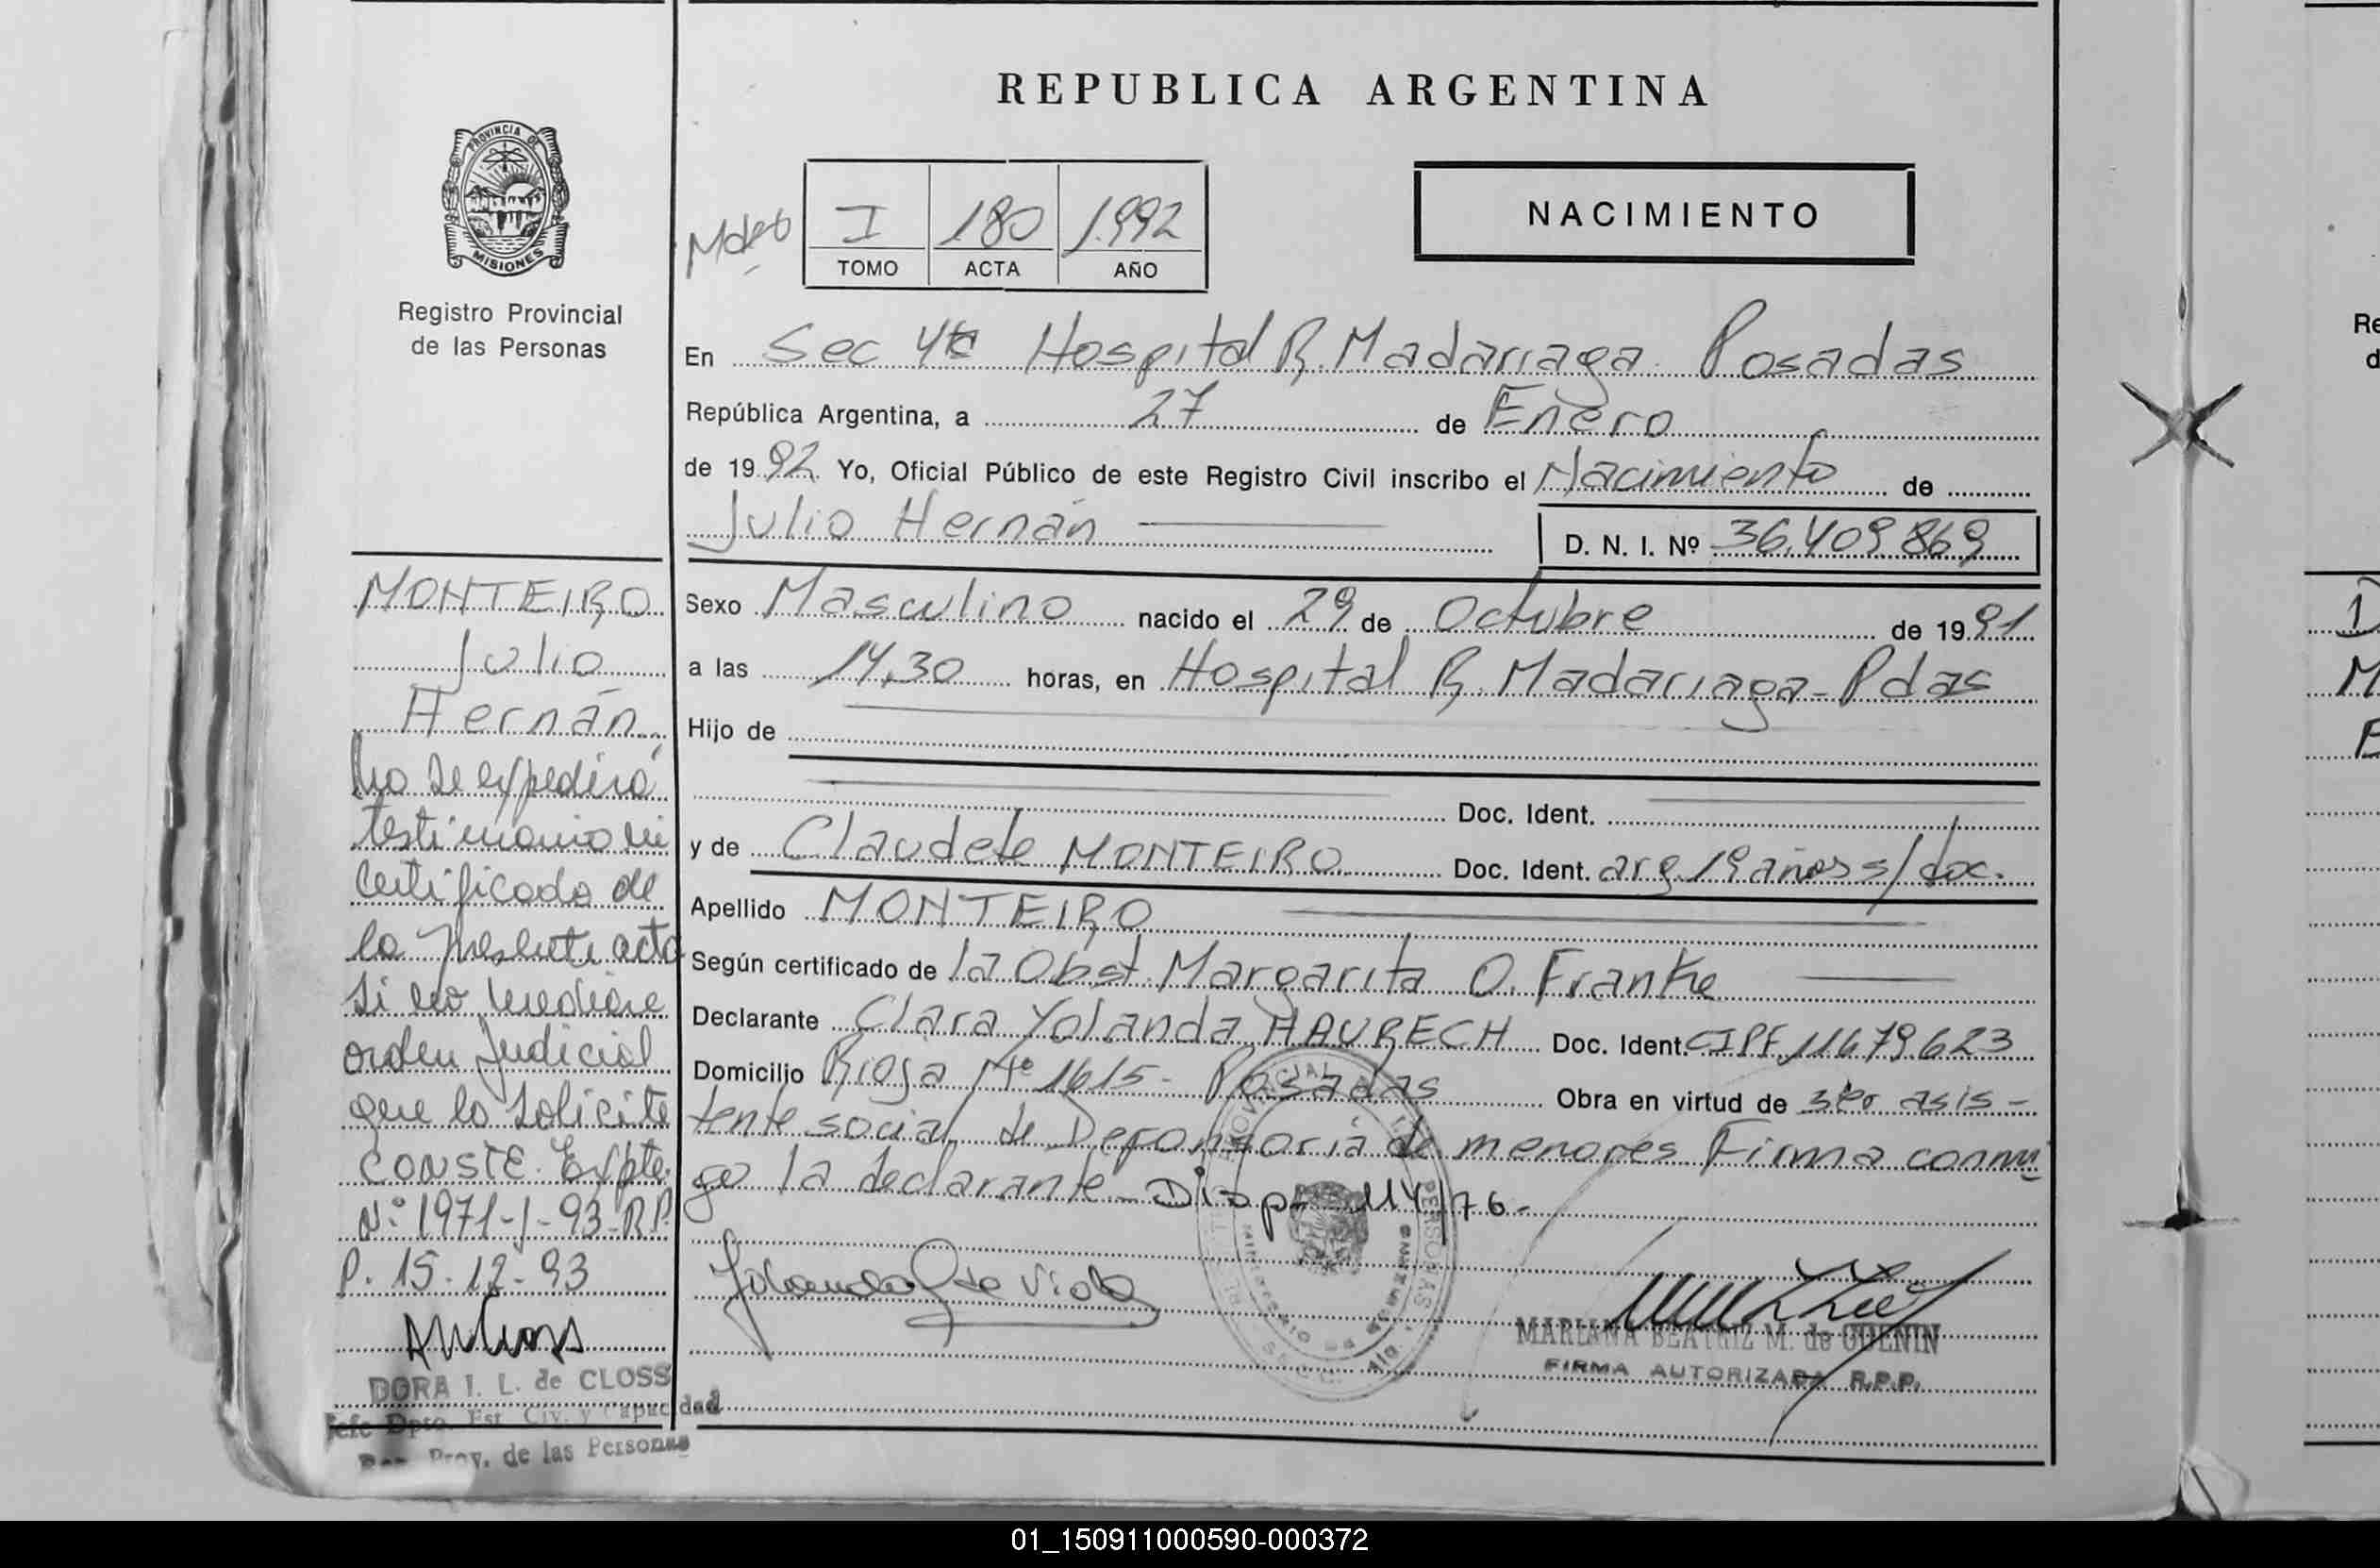 REPUBLICA ARGENTINA
PROVINCIA DE
MISIONES
Registro Provincial
de las Personas
I 180 1.992
TOMO ACTA AÑO
NACIMIENTO
En Sec 4ta Hospital R. Madariaga Posadas
República Argentina, a 27 de Enero
de 1992 Yo, Oficial Público de este Registro Civil inscribo el Nacimiento de
Julio Hernán D. N. I. Nº 36.409.869
Sexo Masculino nacido el 29 de Octubre de 1991
a las 14,30 horas, en Hospital R. Madariaga - Pdas
Hijo de
Doc. Ident.
y de Claudete MONTEIRO Doc. Ident. arg. 19 años s/doc.
Apellido MONTEIRO
Según certificado de la Obst. Margarita O. Franke
Declarante Clara Yolanda HAURECH Doc. Ident. CIPF 11679.623
Domicilio Rioja Nº 1615 - Posadas Obra en virtud de ser asis-
tente social de Defonsoria de menores Firma conmi
go la declarante - Disp. 114/76.-
MARIANA BEATRIZ M. de GUENIN
FIRMA AUTORIZADA R.P.P.
MONTEIRO
Julio
Hernán
No se expedirá
testimonio ni
certificado de
la presente acta
si no mediare
orden judicial
que lo solicite
CONSTE. Expte.
Nº 1971-J-93-R.P.
P. 15-12-93
DORA I. L. de CLOSS
Jefe Dpto. Est. Civ. y Capacidad
Reg. Prov. de las Personas
01_150911000590-000372